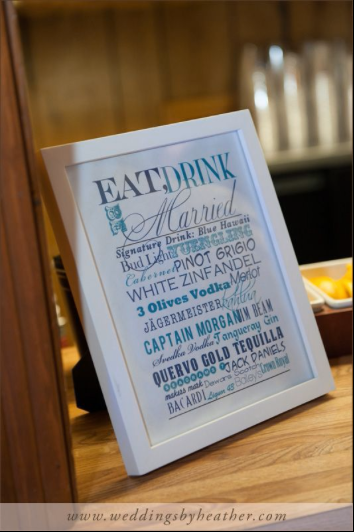 EAT, DRINK
& Married
Signature Drink: Blue Hawaii
Bud Light YUENGLING
Cabernet PINOT GRIGIO
WHITE ZINFANDEL
3 Olives Vodka Merlot
JÄGERMEISTER
CAPTAIN MORGAN JIM BEAM
Svedka Vodka Tanqueray Gin
QUERVO GOLD TEQUILLA
JACK DANIELS
makers mark Dewars Scotch Crown Royal
BACARDI Liquor 43 Baileys
www.weddingsbyheather.com